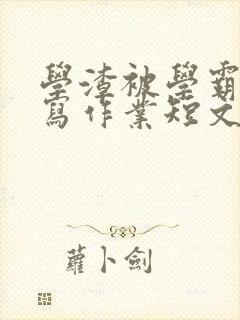 學渣被學霸
寫作業短文
蘿卜劍